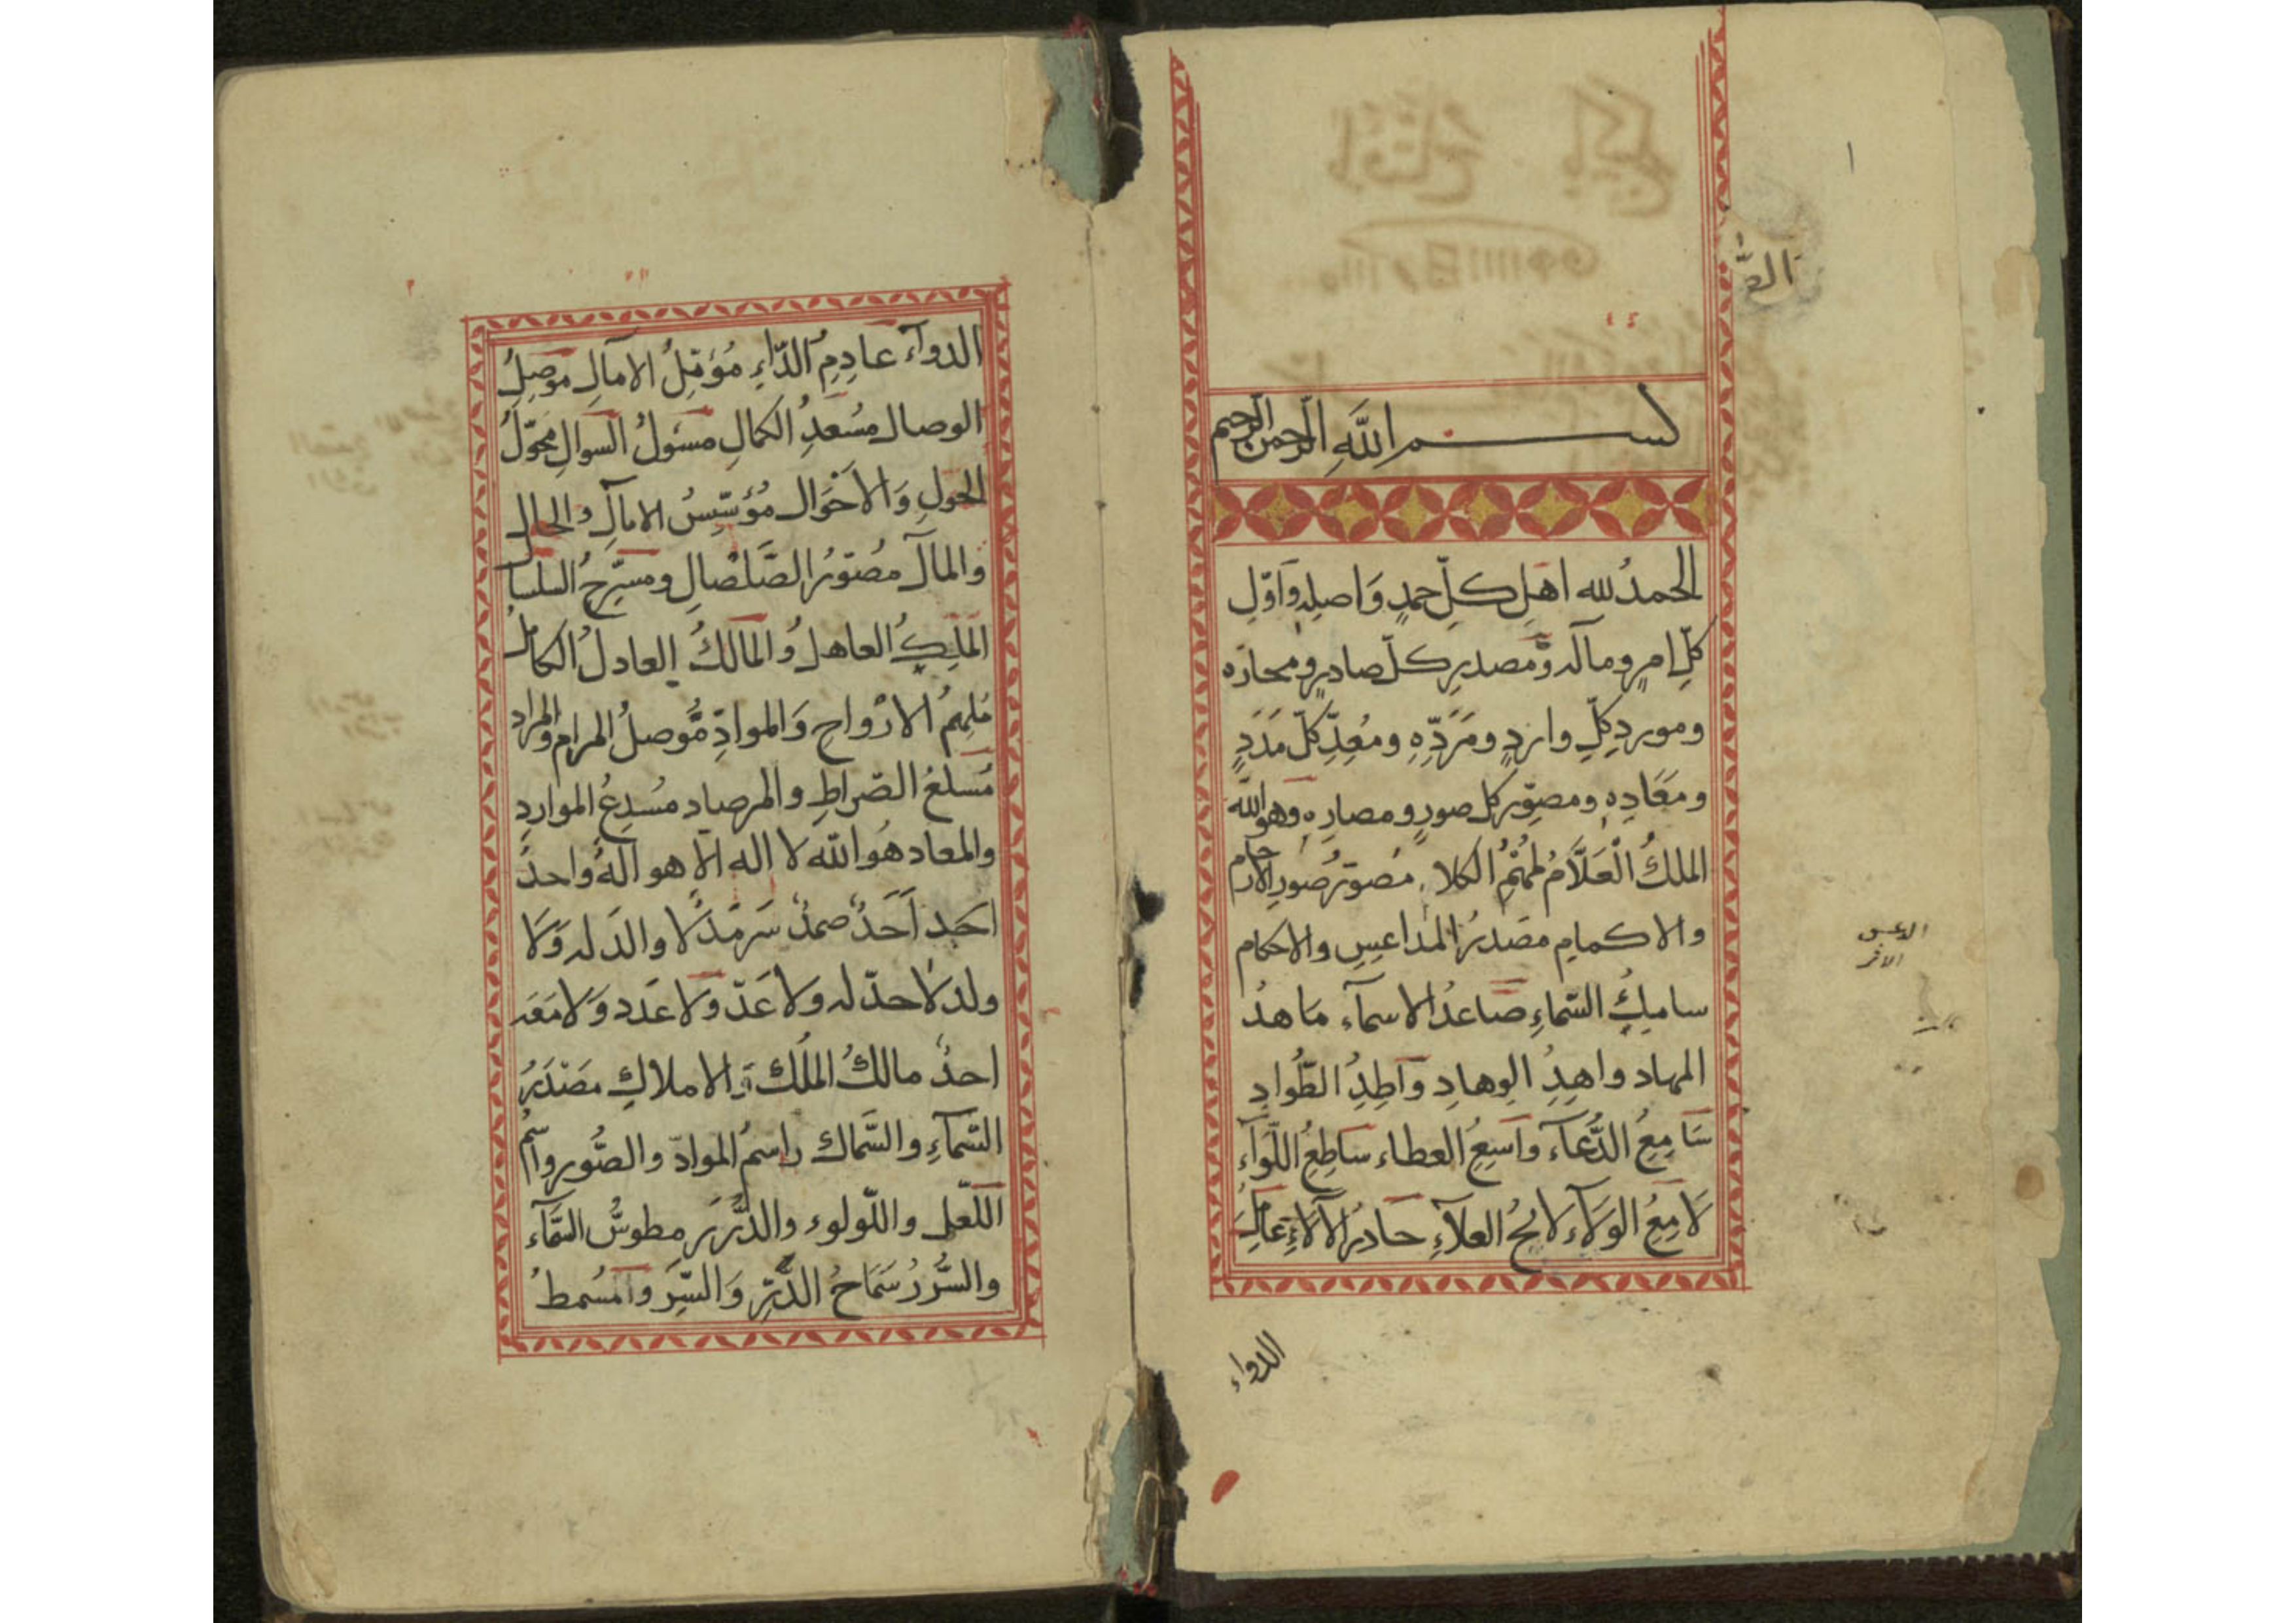 بسم الله الرحمن الرحيم
الحمدُ لله اهلِ كلِّ حمدٍ وَاصلِهِ وَاوّلِ
كلّ امرٍ ومآله ومصدرِ كلّ صادرٍ ومحارّه
وموردِ كلِّ واردٍ ومَرَدِّهِ ومُعِدِّ كلّ مَدَدٍ
ومَعَادِهِ ومصوّر كل صورٍ ومصارِهِ وهو الله
الملكُ الْعَلَّامُ مُلهمُ الكلام مُصوّرُ صورِ الارحام
والاكمامِ مصدرُ المداعيسِ والاحكام
سامكُ السّماءِ صاعدُ الاسمآء مَاهدُ
المهاد واهِدِ الوهادِ وَآطِدِ الطّوادِ
سَامِعُ الدُّعآء واسِعُ العطاء ساطِعُ اللّوآء
لَامِعُ الوَلآء لائحُ العلآءِ حادرُ الآلآءِ عَامِلُ
الدواء
الدوآء عادِمِ الدّاءِ مُؤمّلُ الامآلِ موصِلُ
الوصال مسعدِ الكمالِ مسئولُ السوالِ محوّلُ
الحولِ وَالاحْوَال مُؤسّسُ الامآلِ والحال
والمآل مُصوّرُ الصَّلْصَالِ ومسرّحِ السلسال
المَلِكُ العاهلُ والمالكُ العادلُ الكاملُ
مُلهِمُ الارْواحِ وَالموادِّ مُوصلُ المرام والمراد
مُسلعُ الصّراطِ والمرصاد مُسْدِعُ المواردِ
والمعاد هُو الله لا اله الا هو الهٌ واحدٌ
احَد اَحَدٌ صمدٌ سَرمَدٌ لا والدَ له وَلا
ولد لا حدّ له ولا عَدّ وَلا عَدَد وَلا مَعَه
احدٌ مالكُ المُلك وَالاملاكِ مصْدَرُ
السّمآءِ والسَّماك راسمُ الموادّ والصُّور واسمُ
اللّعل واللّولوء والدُّرَرِ مطوسُّ السّمآء
والسُّرر سَمَاحُ الدُّرِّ وَالسِّرَ وَالمسْمطُ